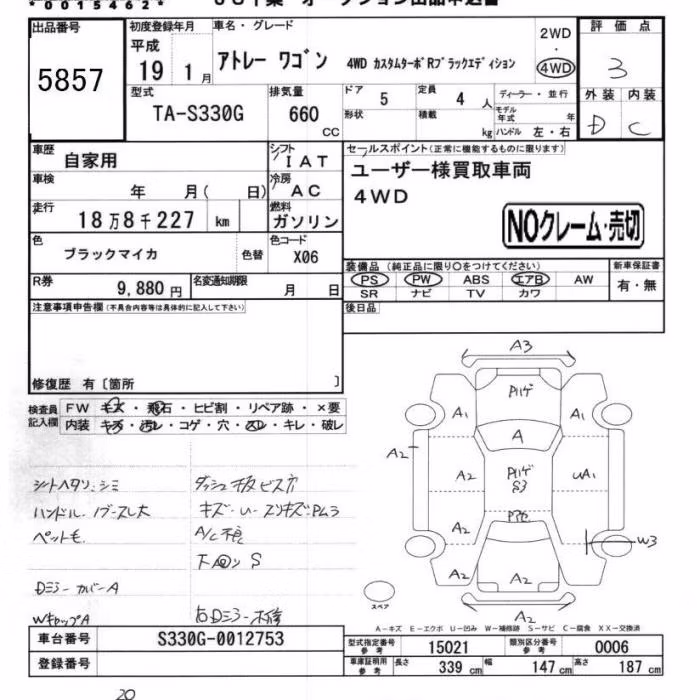 *00015462*
出品番号
5857
初度登録年月
平成
19 1月
車名・グレード
アトレー ワゴン 4WD カスタムターボRブラックエディション
2WD
・
4WD
評価点
3
外装 内装
D C
型式
TA-S330G
排気量
660 CC
ドア 5
定員 4人
形状
積載 kg
ディーラー・並行
モデル年式 年
ハンドル 左・右
車歴
自家用
シフト
IAT
車検
年 月( 日)
冷房
AC
走行
18万8千227 km
燃料
ガソリン
色
ブラックマイカ
色替
色コード
X06
R券
9,880 円
名変通知期限
月 日
セールスポイント(正常に機能するものに限ります)
ユーザー様買取車両
4WD
NOクレーム・売切
装備品(純正品に限り〇をつけてください)
新車保証書
PS PW ABS エアB AW
SR ナビ TV カワ
有・無
後日品
注意事項申告欄(不具合内容等は具体的に記入して下さい)
修復歴 有〔箇所 〕
検査員記入欄
FW キズ・飛石・ヒビ割・リペア跡・×要
内装 キズ・汚レ・コゲ・穴・スレ・キレ・破レ
シートヘタリ、シミ
ダッシュ板ビス穴
ペットモ
A/C不良
Dミラーカバー A
WキャップA
右Dミラー不倒
A3
A1
A1
A
A2
A2
S3
UA1
A2
W3
A2
A2
A2
A2
スペア
A-キズ E-エクボ U-凹み W-補修跡 S-サビ C-腐食 XX-交換済
車台番号
S330G-0012753
登録番号
型式指定番号 参考
15021
類別区分番号 参考
0006
車庫証明用 参考
長さ 339 cm
幅 147 cm
高さ 187 cm
20